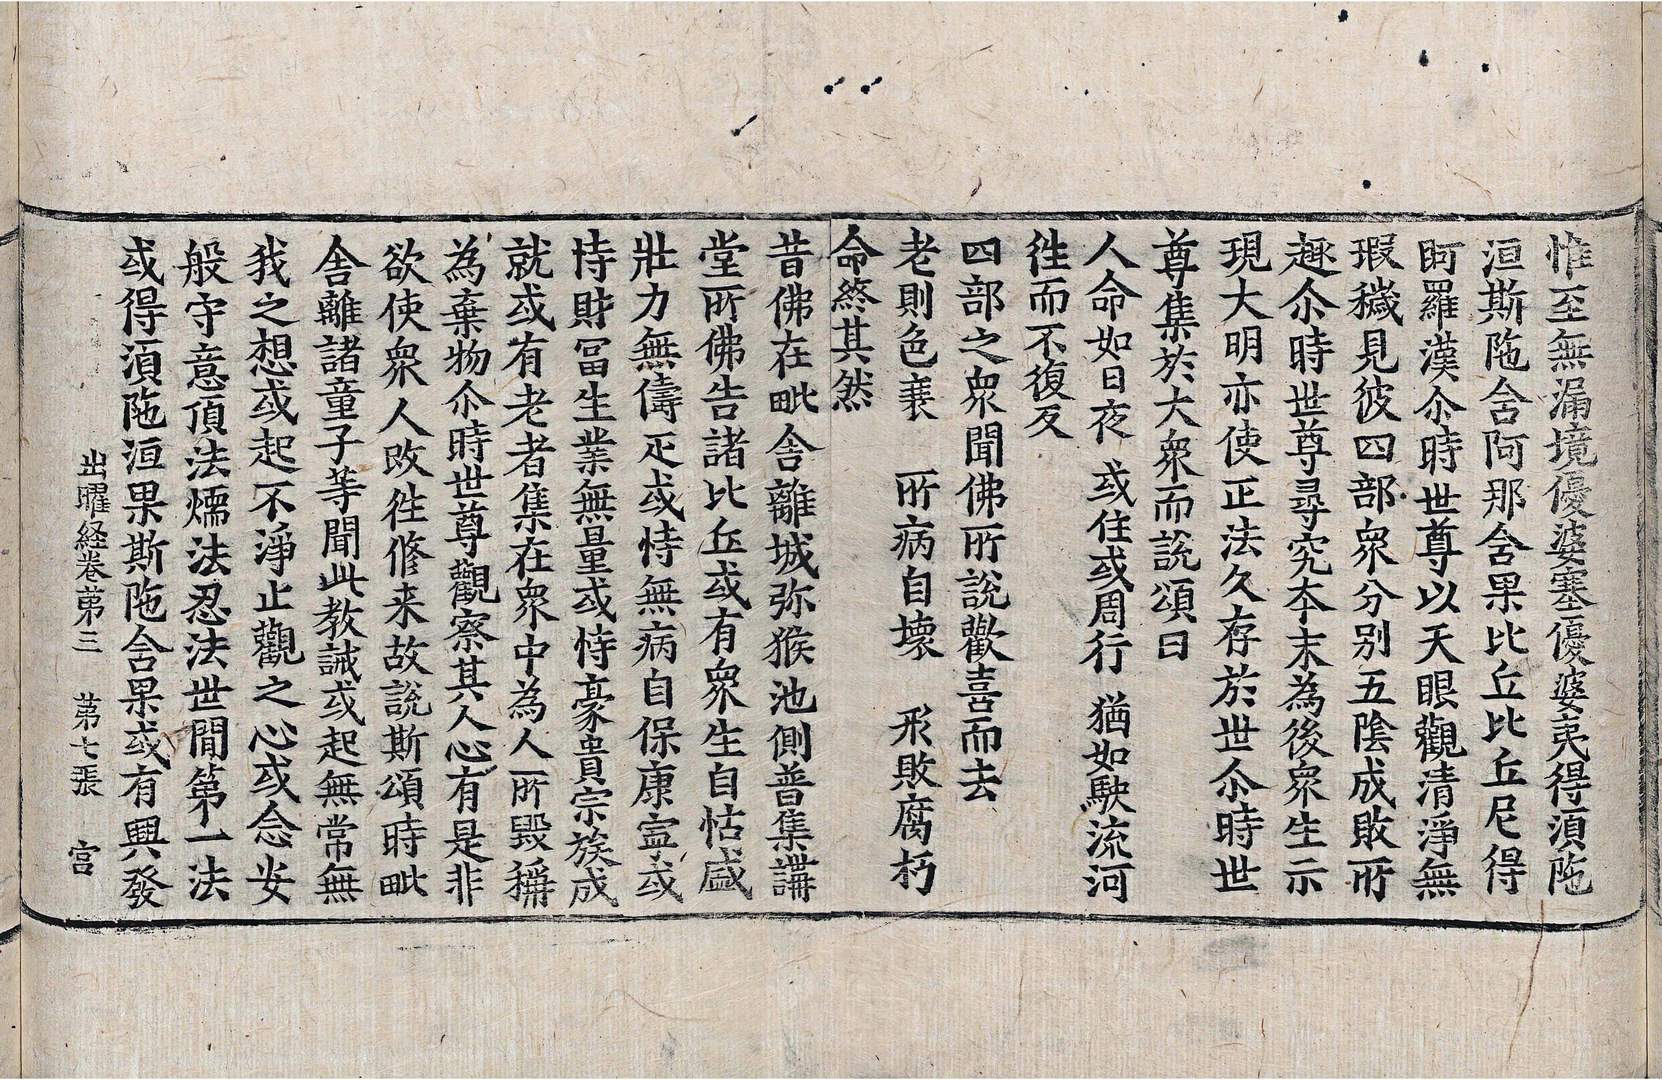 惟至無漏境優婆塞優婆夷得湏陁
洹斯陁含阿那含果比丘比丘尼得
阿羅漢尒時世尊以天眼觀清淨無
瑕穢見彼四部衆分別五陰成敗所
趣尒時世尊尋究夲末為後衆生示
現大明亦使正法久存於世尒時世
尊集於大衆而說頌曰
人命如日夜　或住或周行　猶如駛流河
徃而不復反
四部之衆聞佛所說歡喜而去
老則色衰　所病自壞　形敗腐朽
命終其然
昔佛在毗舍離城弥猴池側普集講
堂所佛告諸比丘或有衆生自怙盛
壯力無儔疋或恃無病自保康寍或
恃財冨生業無量或恃豪貴宗族成
就或有老者集在衆中為人所毀稱
為棄物尒時世尊觀察其人心有是非
欲使衆人改徃修来故說斯頌時毗
舎離諸童子等聞此教誡或起無常無
我之想或起不淨止觀之心或念安
般守意頂法燸法忍法世間第一法
或得湏陁洹果斯陁含果或有興發
出曜経巻苐三　苐七張　宫